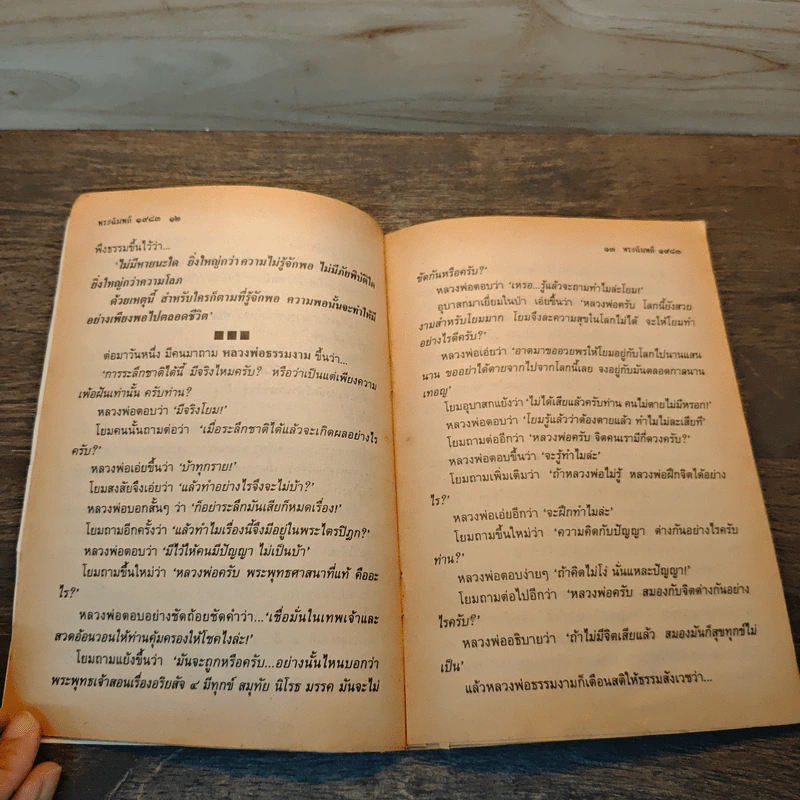 พระฉิมพลี ๑๙๘๓ ๑๒
พึงธรรมขึ้นไว้ว่า...
'ไม่มีหายนะใด ยิ่งใหญ่กว่า ความไม่รู้จักพอ ไม่มีภัยพิบัติใด
ยิ่งใหญ่กว่าความโลภ
ด้วยเหตุนี้ สำหรับใครก็ตามที่รู้จักพอ ความพอนั้นจะทำให้มี
อย่างเพียงพอไปตลอดชีวิต'
ต่อมาวันหนึ่ง มีคนมาถาม หลวงพ่อธรรมงาม ขึ้นว่า...
'การระลึกชาติได้นี้ มีจริงไหมครับ? หรือว่าเป็นแต่เพียงความ
เพ้อฝันเท่านั้น ครับท่าน?
หลวงพ่อตอบว่า 'มีจริงโยม!'
โยมคนนั้นถามต่อว่า 'เมื่อระลึกชาติได้แล้วจะเกิดผลอย่างไร
ครับ?'
หลวงพ่อเอ่ยขึ้นว่า 'บ้าทุกราย!'
โยมสงสัยจึงเอ่ยว่า 'แล้วทำอย่างไรจึงจะไม่บ้า?'
หลวงพ่อบอกสั้นๆ ว่า 'ก็อย่าระลึกมันเสียก็หมดเรื่อง!'
โยมถามอีกครั้งว่า 'แล้วทำไมเรื่องนี้จึงมีอยู่ในพระไตรปิฎก?'
หลวงพ่อตอบว่า 'มีไว้ให้คนมีปัญญา ไม่เป็นบ้า'
โยมถามขึ้นใหม่ว่า 'หลวงพ่อครับ พระพุทธศาสนาที่แท้ คืออะ
ไร?'
หลวงพ่อตอบอย่างชัดถ้อยชัดคำว่า...'เชื่อมั่นในเทพเจ้าและ
สวดอ้อนวอนให้ท่านคุ้มครองให้โชคไงล่ะ!'
โยมถามแย้งขึ้นว่า 'มันจะถูกหรือครับ...อย่างนั้นไหนบอกว่า
พระพุทธเจ้าสอนเรื่องอริยสัจ ๔ มีทุกข์ สมุทัย นิโรธ มรรค มันจะไม่
๑๓ พระฉิมพลี ๑๙๘๓
ขัดกันหรือครับ?'
หลวงพ่อตอบว่า 'เหรอ...รู้แล้วจะถามทำไมล่ะโยม!'
อุบาสกมาเยี่ยมในป่า เอ่ยขึ้นว่า 'หลวงพ่อครับ โลกนี้ยังสวย
งามสำหรับโยมมาก โยมจึงละความสุขในโลกไม่ได้ จะให้โยมทำ
อย่างไรดีครับ?'
หลวงพ่อเอ่ยว่า 'อาตมาขออวยพรให้โยมอยู่กับโลกไปนานแสน
นาน ขออย่าได้ตายจากไปจากโลกนี้เลย จงอยู่กับมันตลอดกาลนาน
เทอญ'
โยมอุบาสกแย้งว่า 'ไม่ได้เสียแล้วครับท่าน คนไม่ตายไม่มีหรอก!'
หลวงพ่อตอบว่า 'โยมรู้แล้วว่าต้องตายแล้ว ทำไมไม่ละเสียที'
โยมถามต่ออีกว่า 'หลวงพ่อครับ จิตคนเรามีกี่ดวงครับ?'
หลวงพ่อตอบขึ้นว่า 'จะรู้ทำไมล่ะ'
โยมถามเพิ่มเติมว่า 'ถ้าหลวงพ่อไม่รู้ หลวงพ่อฝึกจิตได้อย่าง
ไร?'
หลวงพ่อเอ่ยอีกว่า 'จะฝึกทำไมล่ะ'
โยมถามขึ้นใหม่ว่า 'ความคิดกับปัญญา ต่างกันอย่างไรครับ
ท่าน?'
หลวงพ่อตอบง่ายๆ 'ถ้าคิดไม่โง่ นั่นแหละปัญญา!'
โยมถามต่อไปอีกว่า 'หลวงพ่อครับ สมองกับจิตต่างกันอย่าง
ไรครับ?'
หลวงพ่ออธิบายว่า 'ถ้าไม่มีจิตเสียแล้ว สมองมันก็สุขทุกข์ไม่
เป็น'
แล้วหลวงพ่อธรรมงามก็เตือนสติให้ธรรมสังเวชว่า...